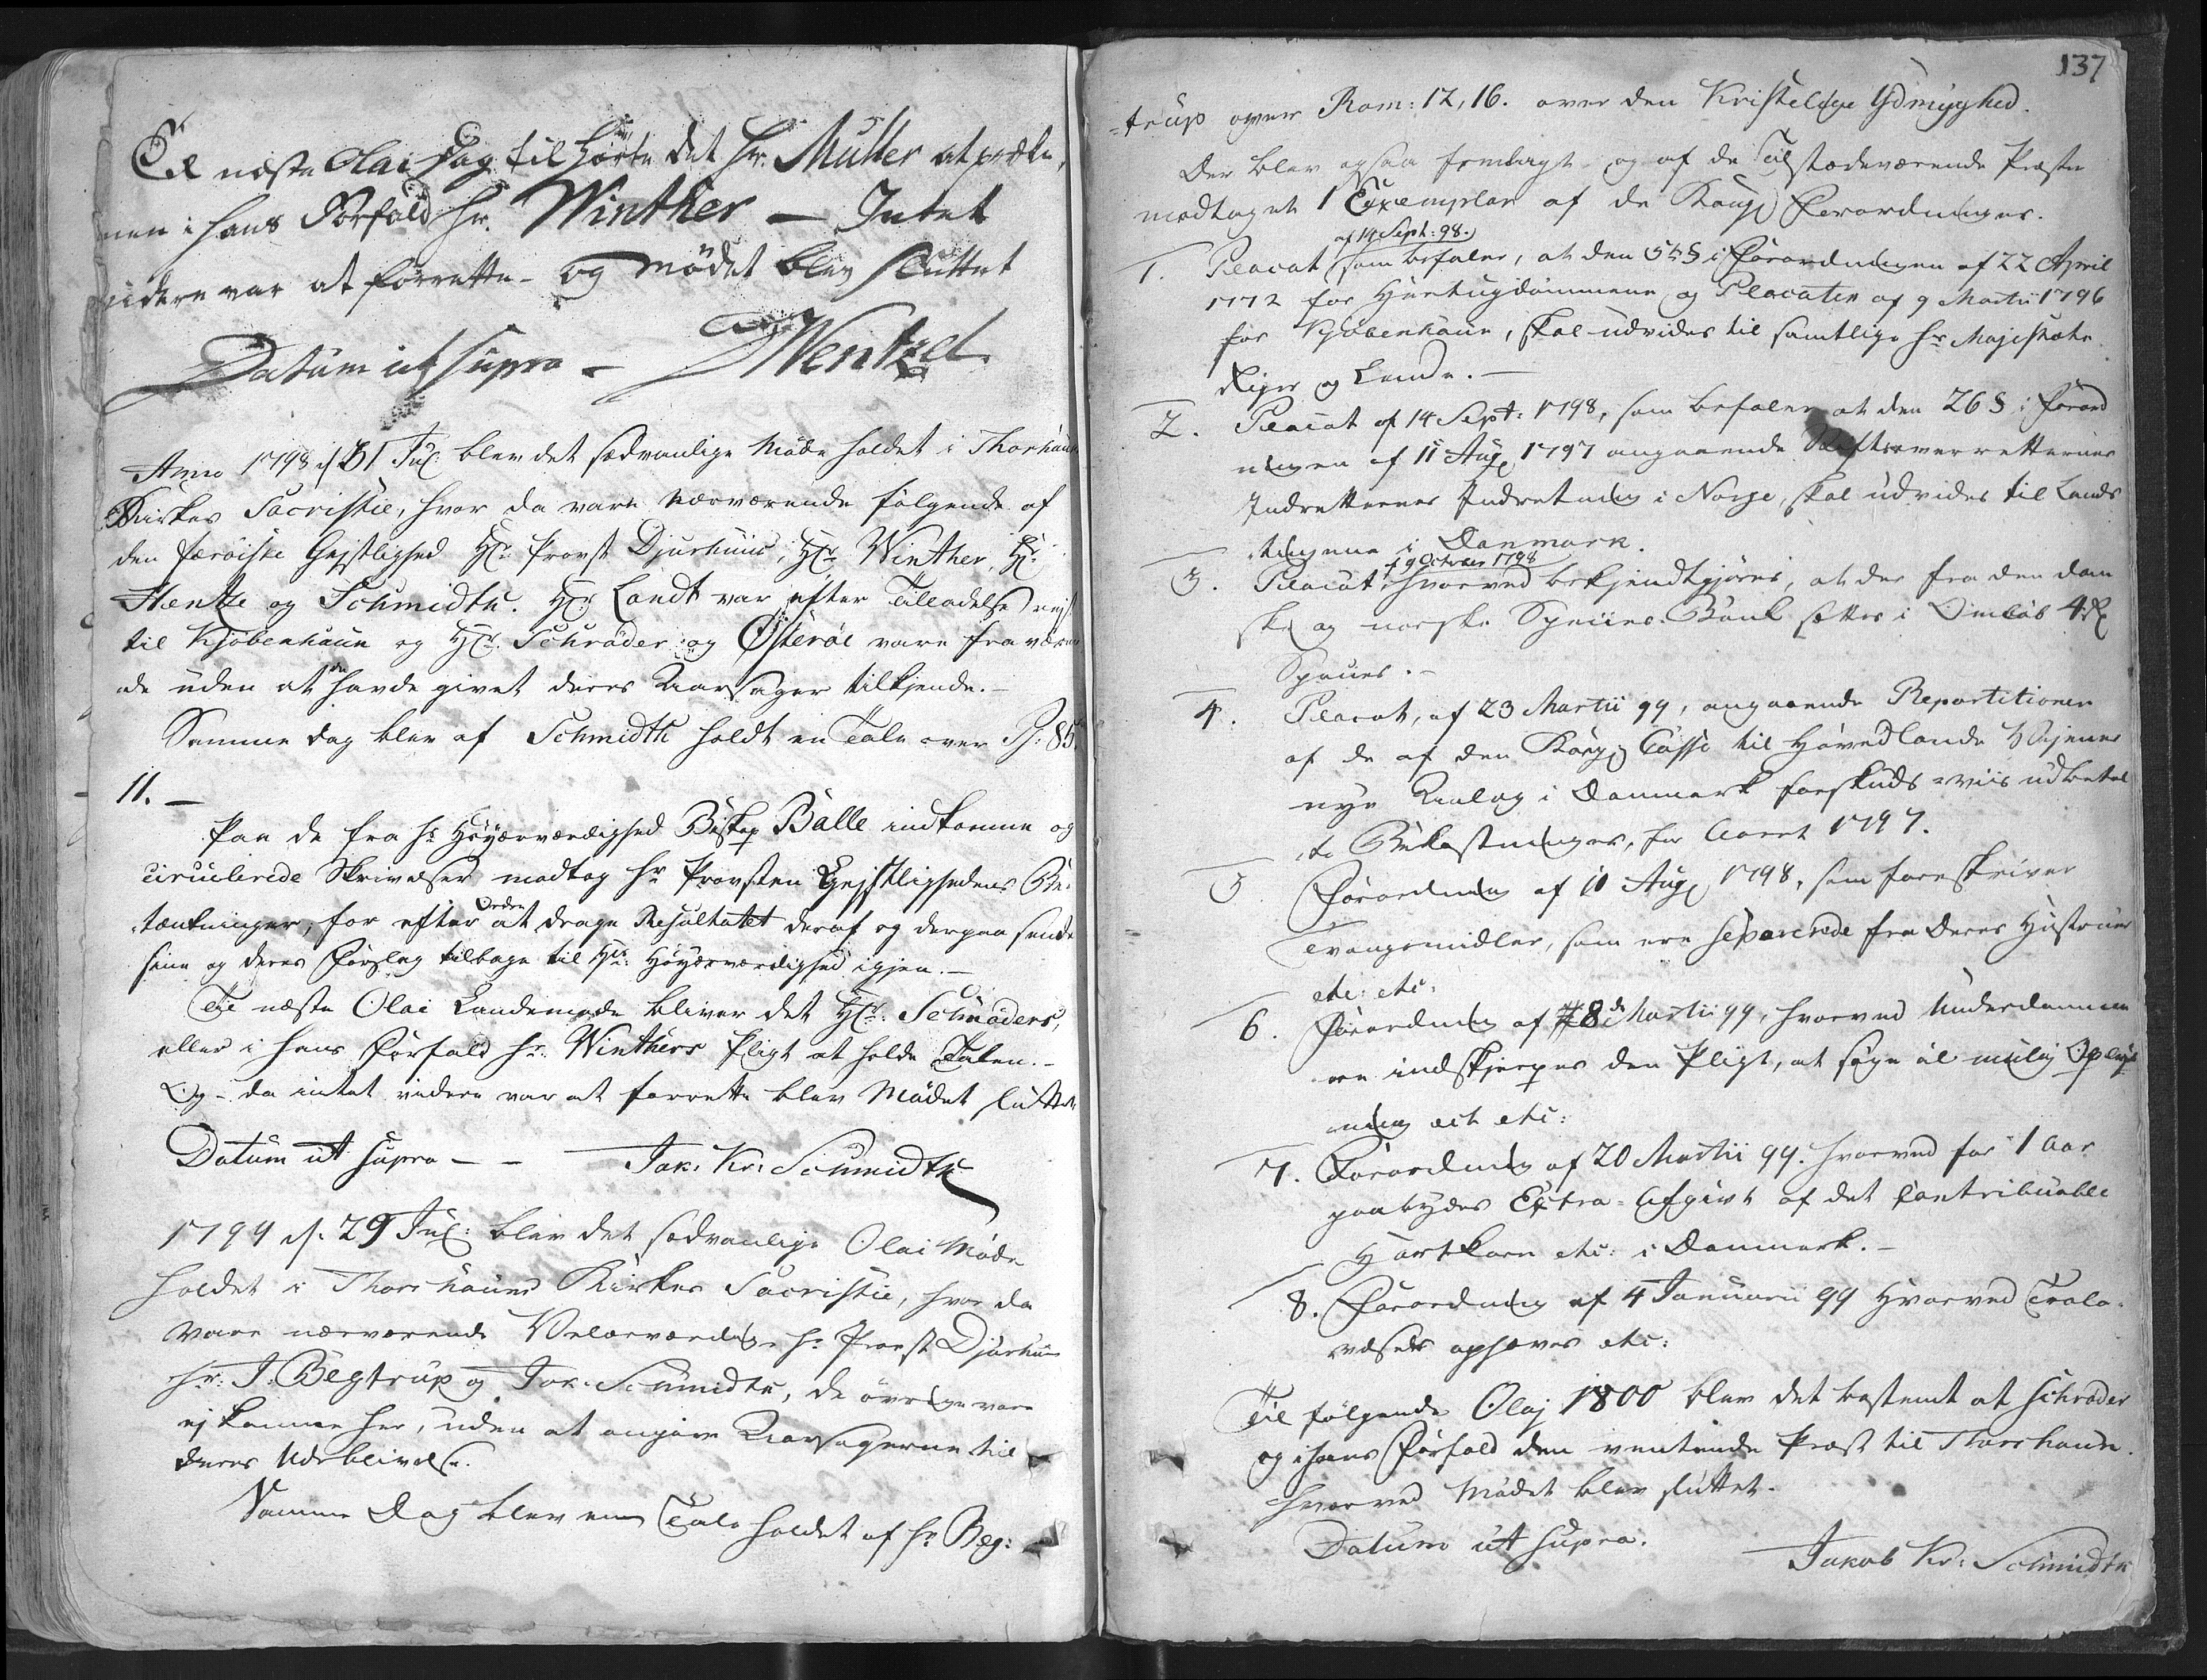 Til næste Olai Dag tilhörte det Hr. Müller at prædike,
men i hans Forfald Hr. Winther — Intet
videre var at forrette – og Mödet blev sluttet
Datum ut supra – Wentzel.
Anno 1798 d. 31 Jul: blev det sædvanlige Möde holdet i Thorshauns
Kirkes Sacristie, hvor da vare nærværende fölgende af
den færöiske Gejstlighed Hr. Provst Djurhuus, Hr. Winther, Hr.
Hentze og Schmidth. Hr. Landt var efter Tilladelse rejst
til Kjöbenhaun og Hr. Schröder og Österöe vare fraværen
de uden at de havde givet deres Aarsager tilkjende. –
Samme Dag blev af Schmidth holdt en Tale over Ps: 85,
11. –
Paa de fra Hs Höyærværdighed Biskop Balle indkomne og
circulerede Skrivelser modtog Hr Provsten Gejstlighedens Be-
tænkninger, for efter Orden at drage Resultatet deraf og derpaa sende
sine og deres Forslag tilbage til Hs: Höyærværdighed igjen. –
Til næste Olai Landemode bliver det Hr. Schröders,
eller i hans Forfald Hr. Winthers Pligt at holde Talen. –
Og – da intet videre var at forrette blev Mödet sluttet
Datum ut supra – – Jak: Kr: Schmidth
1799 d. 29 Jul: blev det sædvanlige Olai Möde
holdet i Thorshauns Kirkes Sacristie, hvor da
vare nærværende Velærværdige Hr Provst Djurhuus
Hr: J: Begtrup og Jak: Schmidth, de övrige vare
ej komne her, uden at angive Aarsagerne til
deres Udeblivelse.
Samme Dag blev en Tale holdet af Hr Beg:
137
=trup over Rom: 12, 16. over den Kristelige Ydmyghed.
Der blev ogsaa fremlagt og af de Tilstædeværende Præster
modtaget 1 Exemplar af de Kongl. Forordninger.
af 14 Sept: 98.
1. Placat som befaler, at den 5te § i Forordningen af 22 April
1772 for Hertugdömmene og Placaten af 9 Martii 1796
for Kjöbenhaun, skal udvides til samtlige Hs Majestæts
Riger og Lande. –
2. Placat af 14 Sept: 1798, som befaler at den 26 § i Forord
ningen af 11 Aug: 1797 angaaende Stiftsoverretternes
Indretternes Indretning i Norge, skal udvides til Lands
tingene i Danmark.
af 9 October 1798
3. Placat hvorved bekjendtgjöres, at der fra den dan
ske og norske Species-Bank sættes i Omlöb 4 Rd
Species. –
4. Placat, af 23 Martii 99, angaaende Repartitionen
af de af den Kongl: Casse til Hovedlande Vejenes
nye Anlæg i Danmark forskuds=viis udbetal
te Bekostninger, for Aaret 1797.
5 Forordning af 10 Aug: 1798, som foreskriver
Tvangsmidler, som ere separerede fra deres Hustruer
etc: etc:
6. Forordning af 8de Martii 99, hvorved Underdannere
indskjerpes den Pligt, at söge al mulig Oplys
ning etc etc:
7. Forordning af 20 Martii 99. hvorved for 1 Aar
paabydes Extra-Afgivt af det contribuable
Hartkorn etc: i Danmark. –
8. Forordning af 4 Januarii 99 Hvorved Trolo-
velser ophæves etc:
Til fölgende Olaj 1800 blev det bestemt at Schröder
og i hans Forfald den ventende Præst til Thorshaun.
Hvorved Mödet blev sluttet.
Datum ut supra.
Jakob Kr: Schmidth